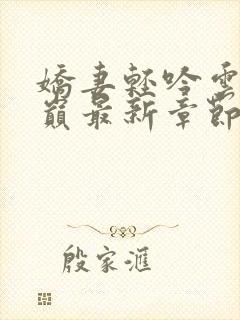 嬌妻輕吟雲
巔最新章節
殷家滙